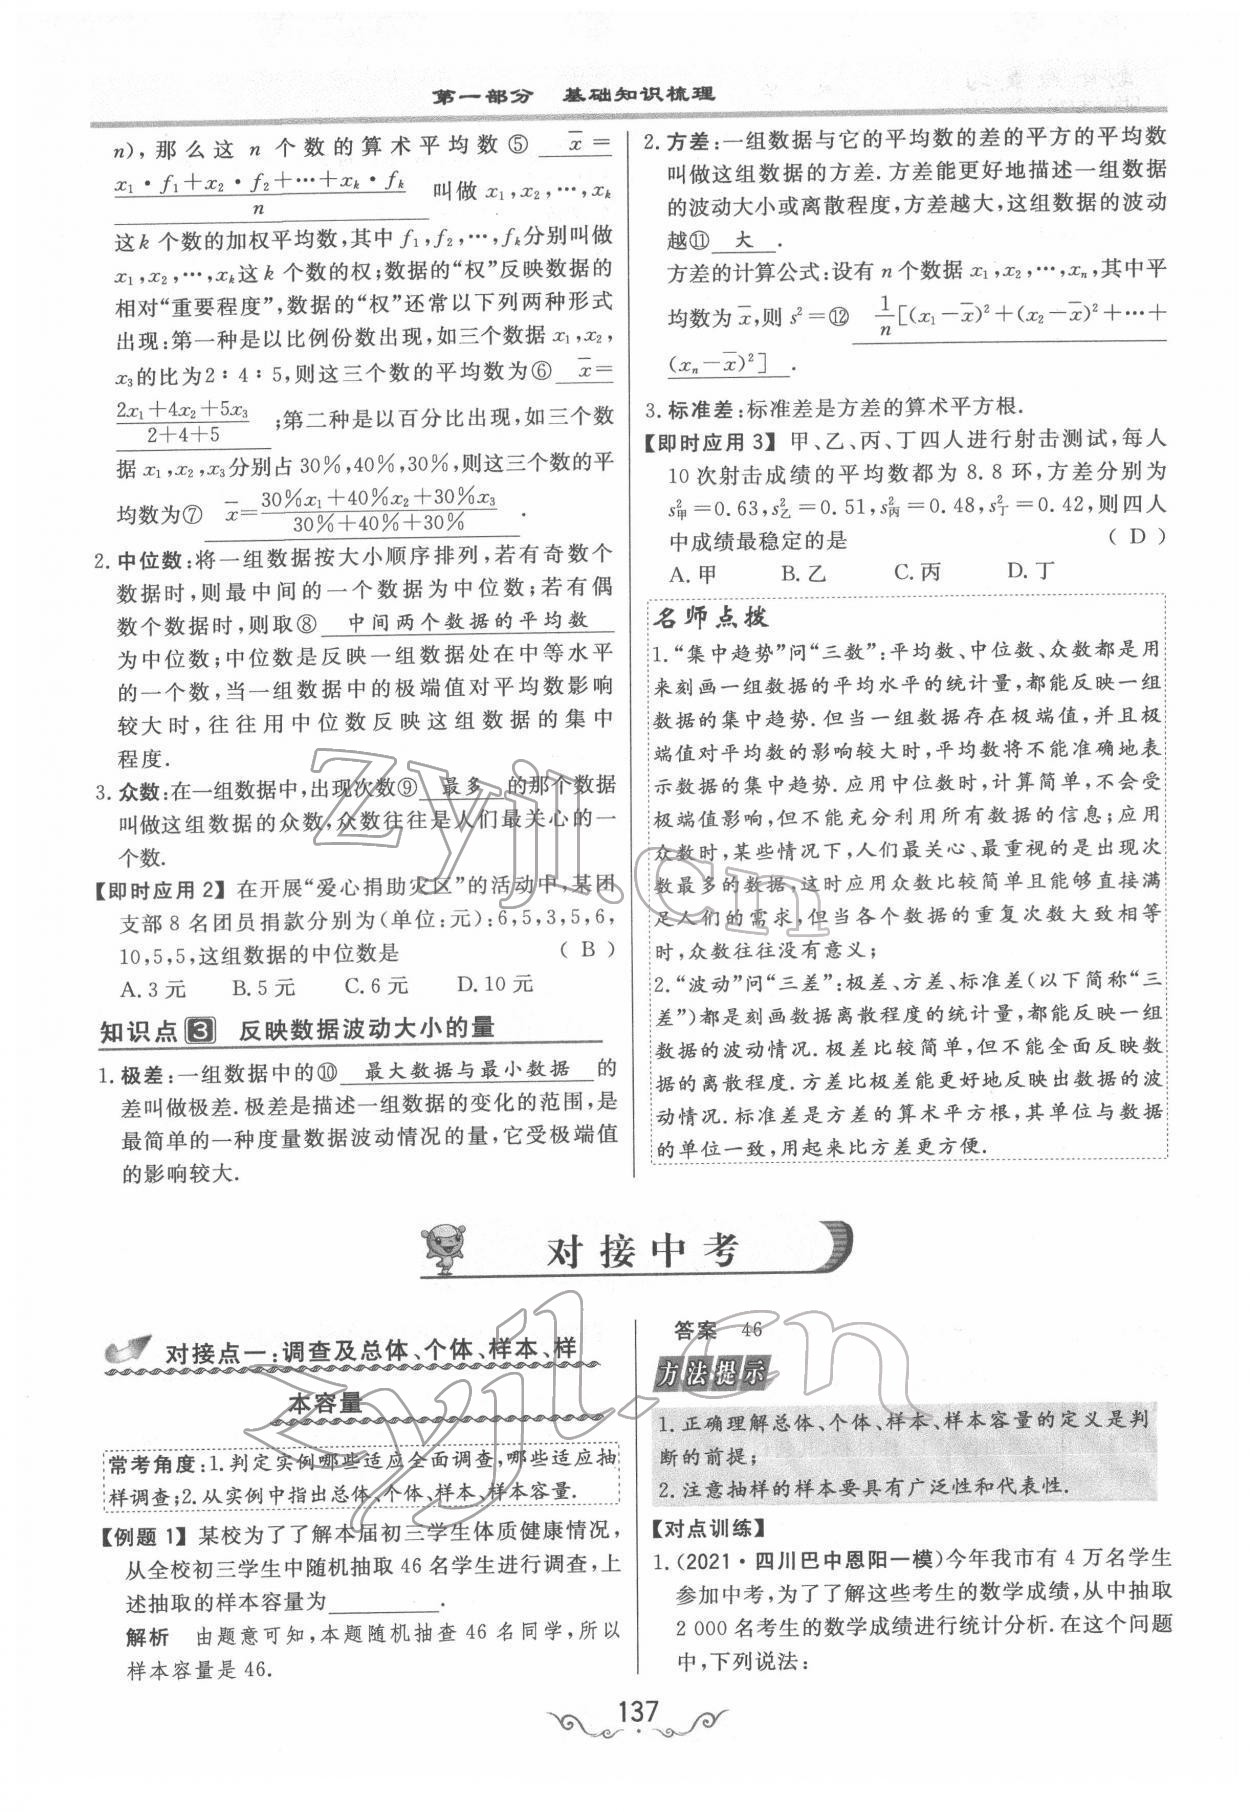 第一部分　基础知识梳理
n),那么这 n 个数的算术平均数⑤ x̄=
(x₁·f₁+x₂·f₂+…+xₖ·fₖ)/n 叫做 x₁,x₂,…,xₖ
这 k 个数的加权平均数,其中 f₁,f₂,…,fₖ分别叫做
x₁,x₂,…,xₖ这 k 个数的权;数据的“权”反映数据的
相对“重要程度”,数据的“权”还常以下列两种形式
出现:第一种是以比例份数出现,如三个数据 x₁,x₂,
x₃的比为2∶4∶5,则这三个数的平均数为⑥ x̄=
(2x₁+4x₂+5x₃)/(2+4+5) ;第二种是以百分比出现,如三个数
据 x₁,x₂,x₃分别占 30%,40%,30%,则这三个数的平
均数为⑦ x̄=(30%x₁+40%x₂+30%x₃)/(30%+40%+30%) .
2. 中位数:将一组数据按大小顺序排列,若有奇数个
数据时,则最中间的一个数据为中位数;若有偶
数个数据时,则取⑧ 中间两个数据的平均数
为中位数;中位数是反映一组数据处在中等水平
的一个数,当一组数据中的极端值对平均数影响
较大时,往往用中位数反映这组数据的集中
程度.
3. 众数:在一组数据中,出现次数⑨ 最多 的那个数据
叫做这组数据的众数,众数往往是人们最关心的一
个数.
【即时应用 2】在开展“爱心捐助灾区”的活动中,某团
支部 8 名团员捐款分别为(单位:元):6,5,3,5,6,
10,5,5,这组数据的中位数是 ( B )
A. 3 元 B. 5 元 C. 6 元 D. 10 元
知识点 3 反映数据波动大小的量
1. 极差:一组数据中的⑩ 最大数据与最小数据 的
差叫做极差.极差是描述一组数据的变化的范围,是
最简单的一种度量数据波动情况的量,它受极端值
的影响较大.
2. 方差:一组数据与它的平均数的差的平方的平均数
叫做这组数据的方差.方差能更好地描述一组数据
的波动大小或离散程度,方差越大,这组数据的波动
越⑪ 大 .
方差的计算公式:设有 n 个数据 x₁,x₂,…,xₙ,其中平
均数为 x̄,则 s²=⑫ 1/n[(x₁-x̄)²+(x₂-x̄)²+…+
(xₙ-x̄)²] .
3. 标准差:标准差是方差的算术平方根.
【即时应用 3】甲、乙、丙、丁四人进行射击测试,每人
10 次射击成绩的平均数都为 8.8 环,方差分别为
s²甲=0.63,s²乙=0.51,s²丙=0.48,s²丁=0.42,则四人
中成绩最稳定的是 ( D )
A. 甲 B. 乙 C. 丙 D. 丁
名师点拨
1.“集中趋势”问“三数”:平均数、中位数、众数都是用
来刻画一组数据的平均水平的统计量,都能反映一组
数据的集中趋势.但当一组数据存在极端值,并且极
端值对平均数的影响较大时,平均数将不能准确地表
示数据的集中趋势.应用中位数时,计算简单,不会受
极端值影响,但不能充分利用所有数据的信息;应用
众数时,某些情况下,人们最关心、最重视的是出现次
数最多的数据,这时应用众数比较简单且能够直接满
足人们的需求,但当各个数据的重复次数大致相等
时,众数往往没有意义;
2.“波动”问“三差”:极差、方差、标准差(以下简称“三
差”)都是刻画数据离散程度的统计量,都能反映一组
数据的波动情况.极差比较简单,但不能全面反映数
据的离散程度.方差比极差能更好地反映出数据的波
动情况.标准差是方差的算术平方根,其单位与数据
的单位一致,用起来比方差更方便.
对接中考
对接点一:调查及总体、个体、样本、样
本容量
常考角度:1.判定实例哪些适应全面调查,哪些适应抽
样调查;2.从实例中指出总体、个体、样本、样本容量.
【例题 1】某校为了了解本届初三学生体质健康情况,
从全校初三学生中随机抽取 46 名学生进行调查,上
述抽取的样本容量为________.
解析　由题意可知,本题随机抽查 46 名同学,所以
样本容量是 46.
答案　46
方法提示
1.正确理解总体、个体、样本、样本容量的定义是判
断的前提;
2.注意抽样的样本要具有广泛性和代表性.
【对点训练】
1.(2021·四川巴中恩阳一模)今年我市有 4 万名学生
参加中考,为了了解这些考生的数学成绩,从中抽取
2 000 名考生的数学成绩进行统计分析.在这个问题
中,下列说法:
137
zyjl.cn
zyjl.cn